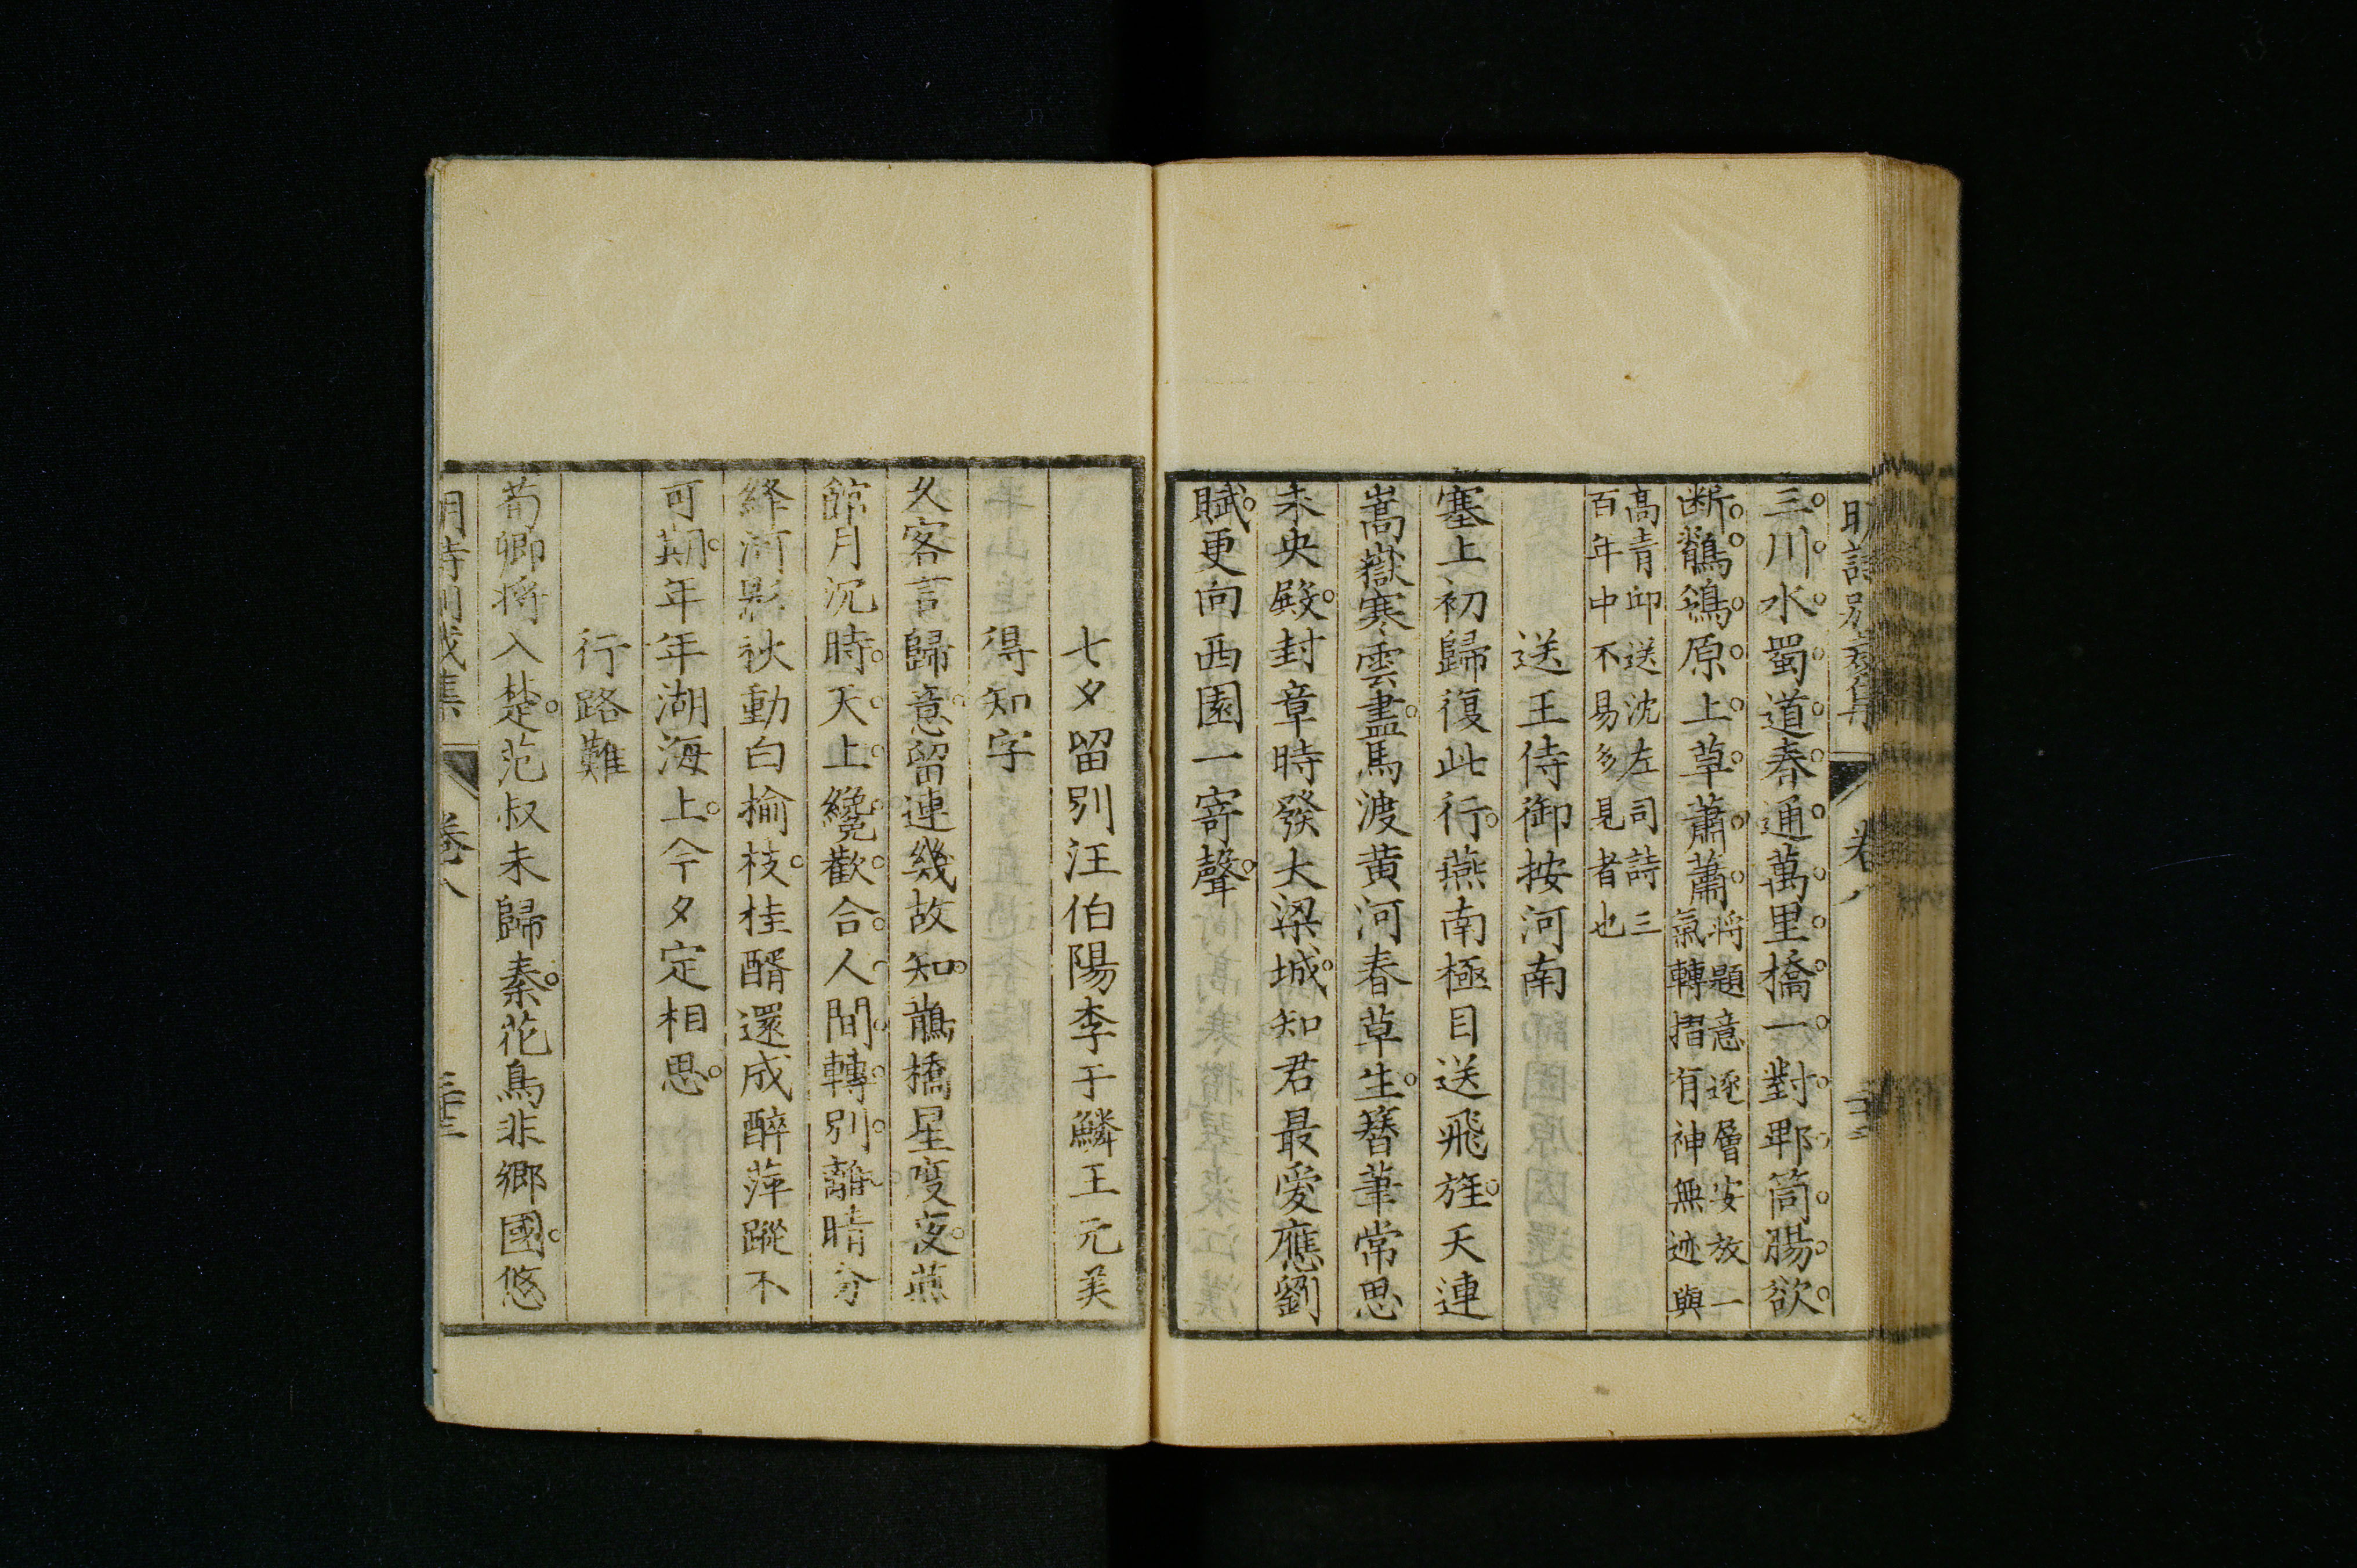 三川水蜀道春通萬里橋一對郫筒腸欲
断鶺鴒原上草蕭蕭將題意逐層安放一
氣轉摺有神無迹與
高青邱送沈左司詩三
百年中不易多見者也
送王侍御按河南
塞上初歸復此行燕南極目送飛旌天連
嵩嶽寒雲盡馬渡黃河春草生簪筆常思
未央殿封章時發大梁城知君最愛應劉
賦更向西園一寄聲
七夕留別汪伯陽李于鱗王元美
得知字
久客言歸意留連幾故知鵲橋星度夜燕
館月沉時天上纔歡合人間轉別離晴分
絳河影秋動白榆枝桂醑還成醉萍蹤不
可期年年湖海上今夕定相思
行路難
荀卿將入楚范叔未歸秦花鳥非鄉國悠
卷八